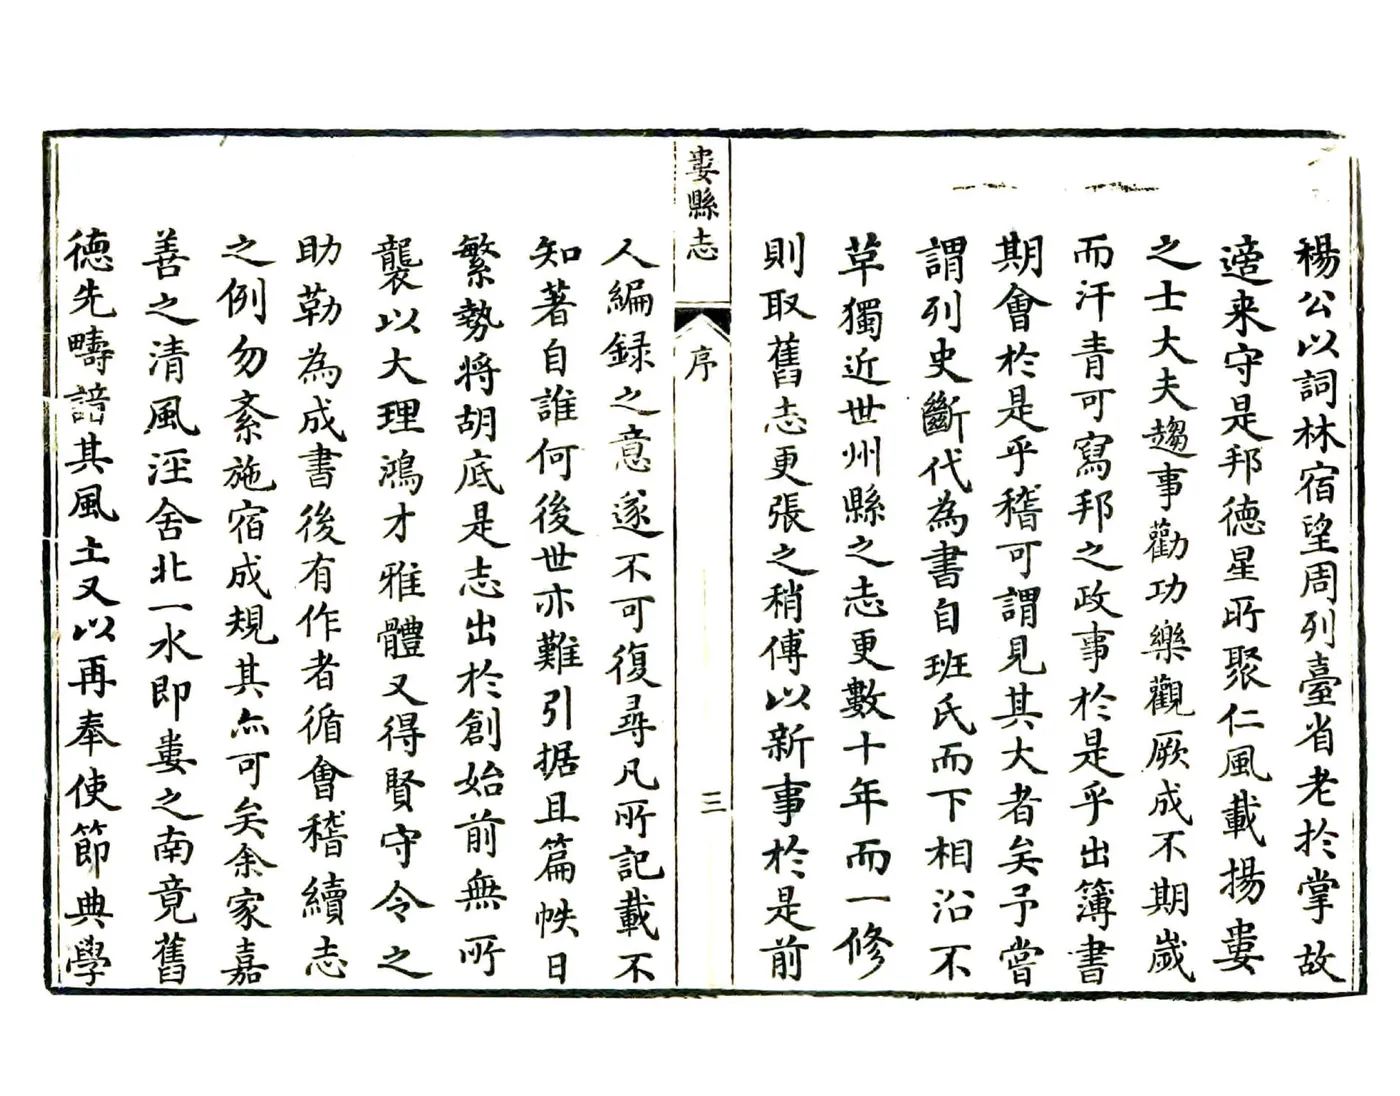 楊公以詞林宿望周列臺省老於掌故
適来守是邦德星所聚仁風載揚婁
之士大夫趨事勸功樂觀厥成不期歲
而汗青可寫邦之政事於是乎出簿書
期會於是乎稽可謂見其大者矣予嘗
謂列史斷代為書自班氏而下相沿不
草獨近世州縣之志更數十年而一修
則取舊志更張之稍傅以新事於是前
婁縣志
序
三
人編録之意遂不可復尋凡所記載不
知著自誰何後世亦難引据且篇帙日
繁勢將胡底是志出於創始前無所
襲以大理鴻才雅體又得賢守令之
助勒為成書後有作者循會稽續志
之例勿紊施宿成規其亦可矣余家嘉
善之清風涇舍北一水即婁之南竟舊
德先疇諳其風土又以再奉使節典學